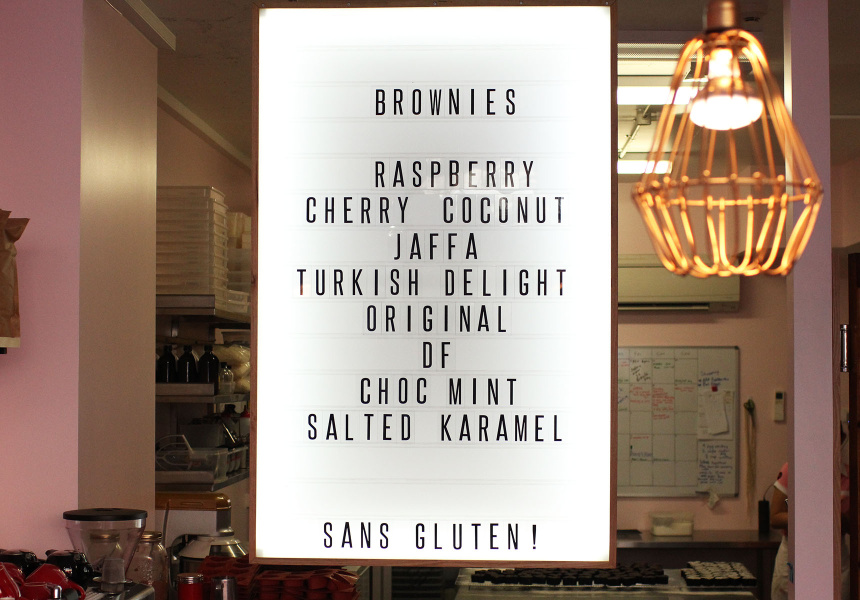 BROWNIES
RASPBERRY
CHERRY COCONUT
JAFFA
TURKISH DELIGHT
ORIGINAL
DF
CHOC MINT
SALTED KARAMEL
SANS GLUTEN!